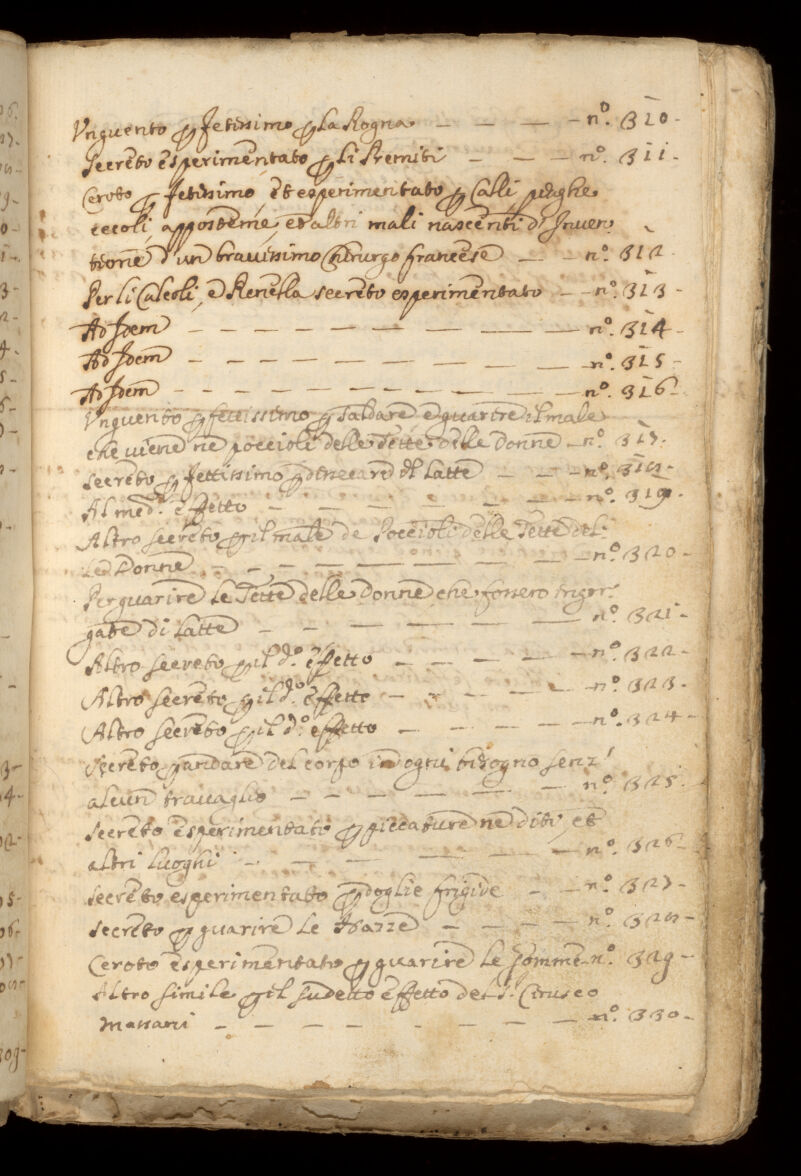 Unguento p fetissimo p la Rogna — — — — n.º 310-
Secreto esperimentato p li Remiti — — — n.º 311-
Ceroto p fetissimo, et esperimentato p Calli, piaghe
cecoli, apposteme, et altri mali nascenti d' Inuen
tione d' un brauissimo Chirurgo francese — — n.º 312
Per li Calcoli, e Renella secreto esperimentato — n.º 313-
Ad Idem — — — — — — — — n.º 314-
Ad Idem — — — — — — — — n.º 315-
Ad Idem — — — — — — — — n.º 316-
Unguento p fettissimo p saldare e guarire il male
che uiene ne poccioli delle Tette delle Donne — n.º 317-
Secreto p fettissimo p diseccare il Latte — — n.º 318-
Al med.º effetto — — — — — — n.º 319-
Altro secreto p il male de Poccioli delle Tette del-
le Donne — — — — — — — n.º 320-
Per guarire le Tette delle Donne che fossero ingor-
gate di Latte — — — — — — n.º 321-
Altro secreto p il d.º effetto — — — — n.º 322-
Altro secreto p il d.º effetto — — — — n.º 323-
Altro secreto p il d.º effetto — — — — n.º 324-
Secreto p andare del corpo in ogni bisogno senz'
alcun trauaglio — — — — — — n.º 325-
Secreto esperimentato p piccature ne diti, et
altri luoghi — — — — — — n.º 326-
Secreto esperimentato p doglie frigide — — n.º 327-
Secreto p guarire le — — — — n.º 328-
Ceroto esperimentato p guarire le Gomme n.º 329-
Altro simile p il sudetto effetto del S.
Massari — — — — — — — n.º 330-